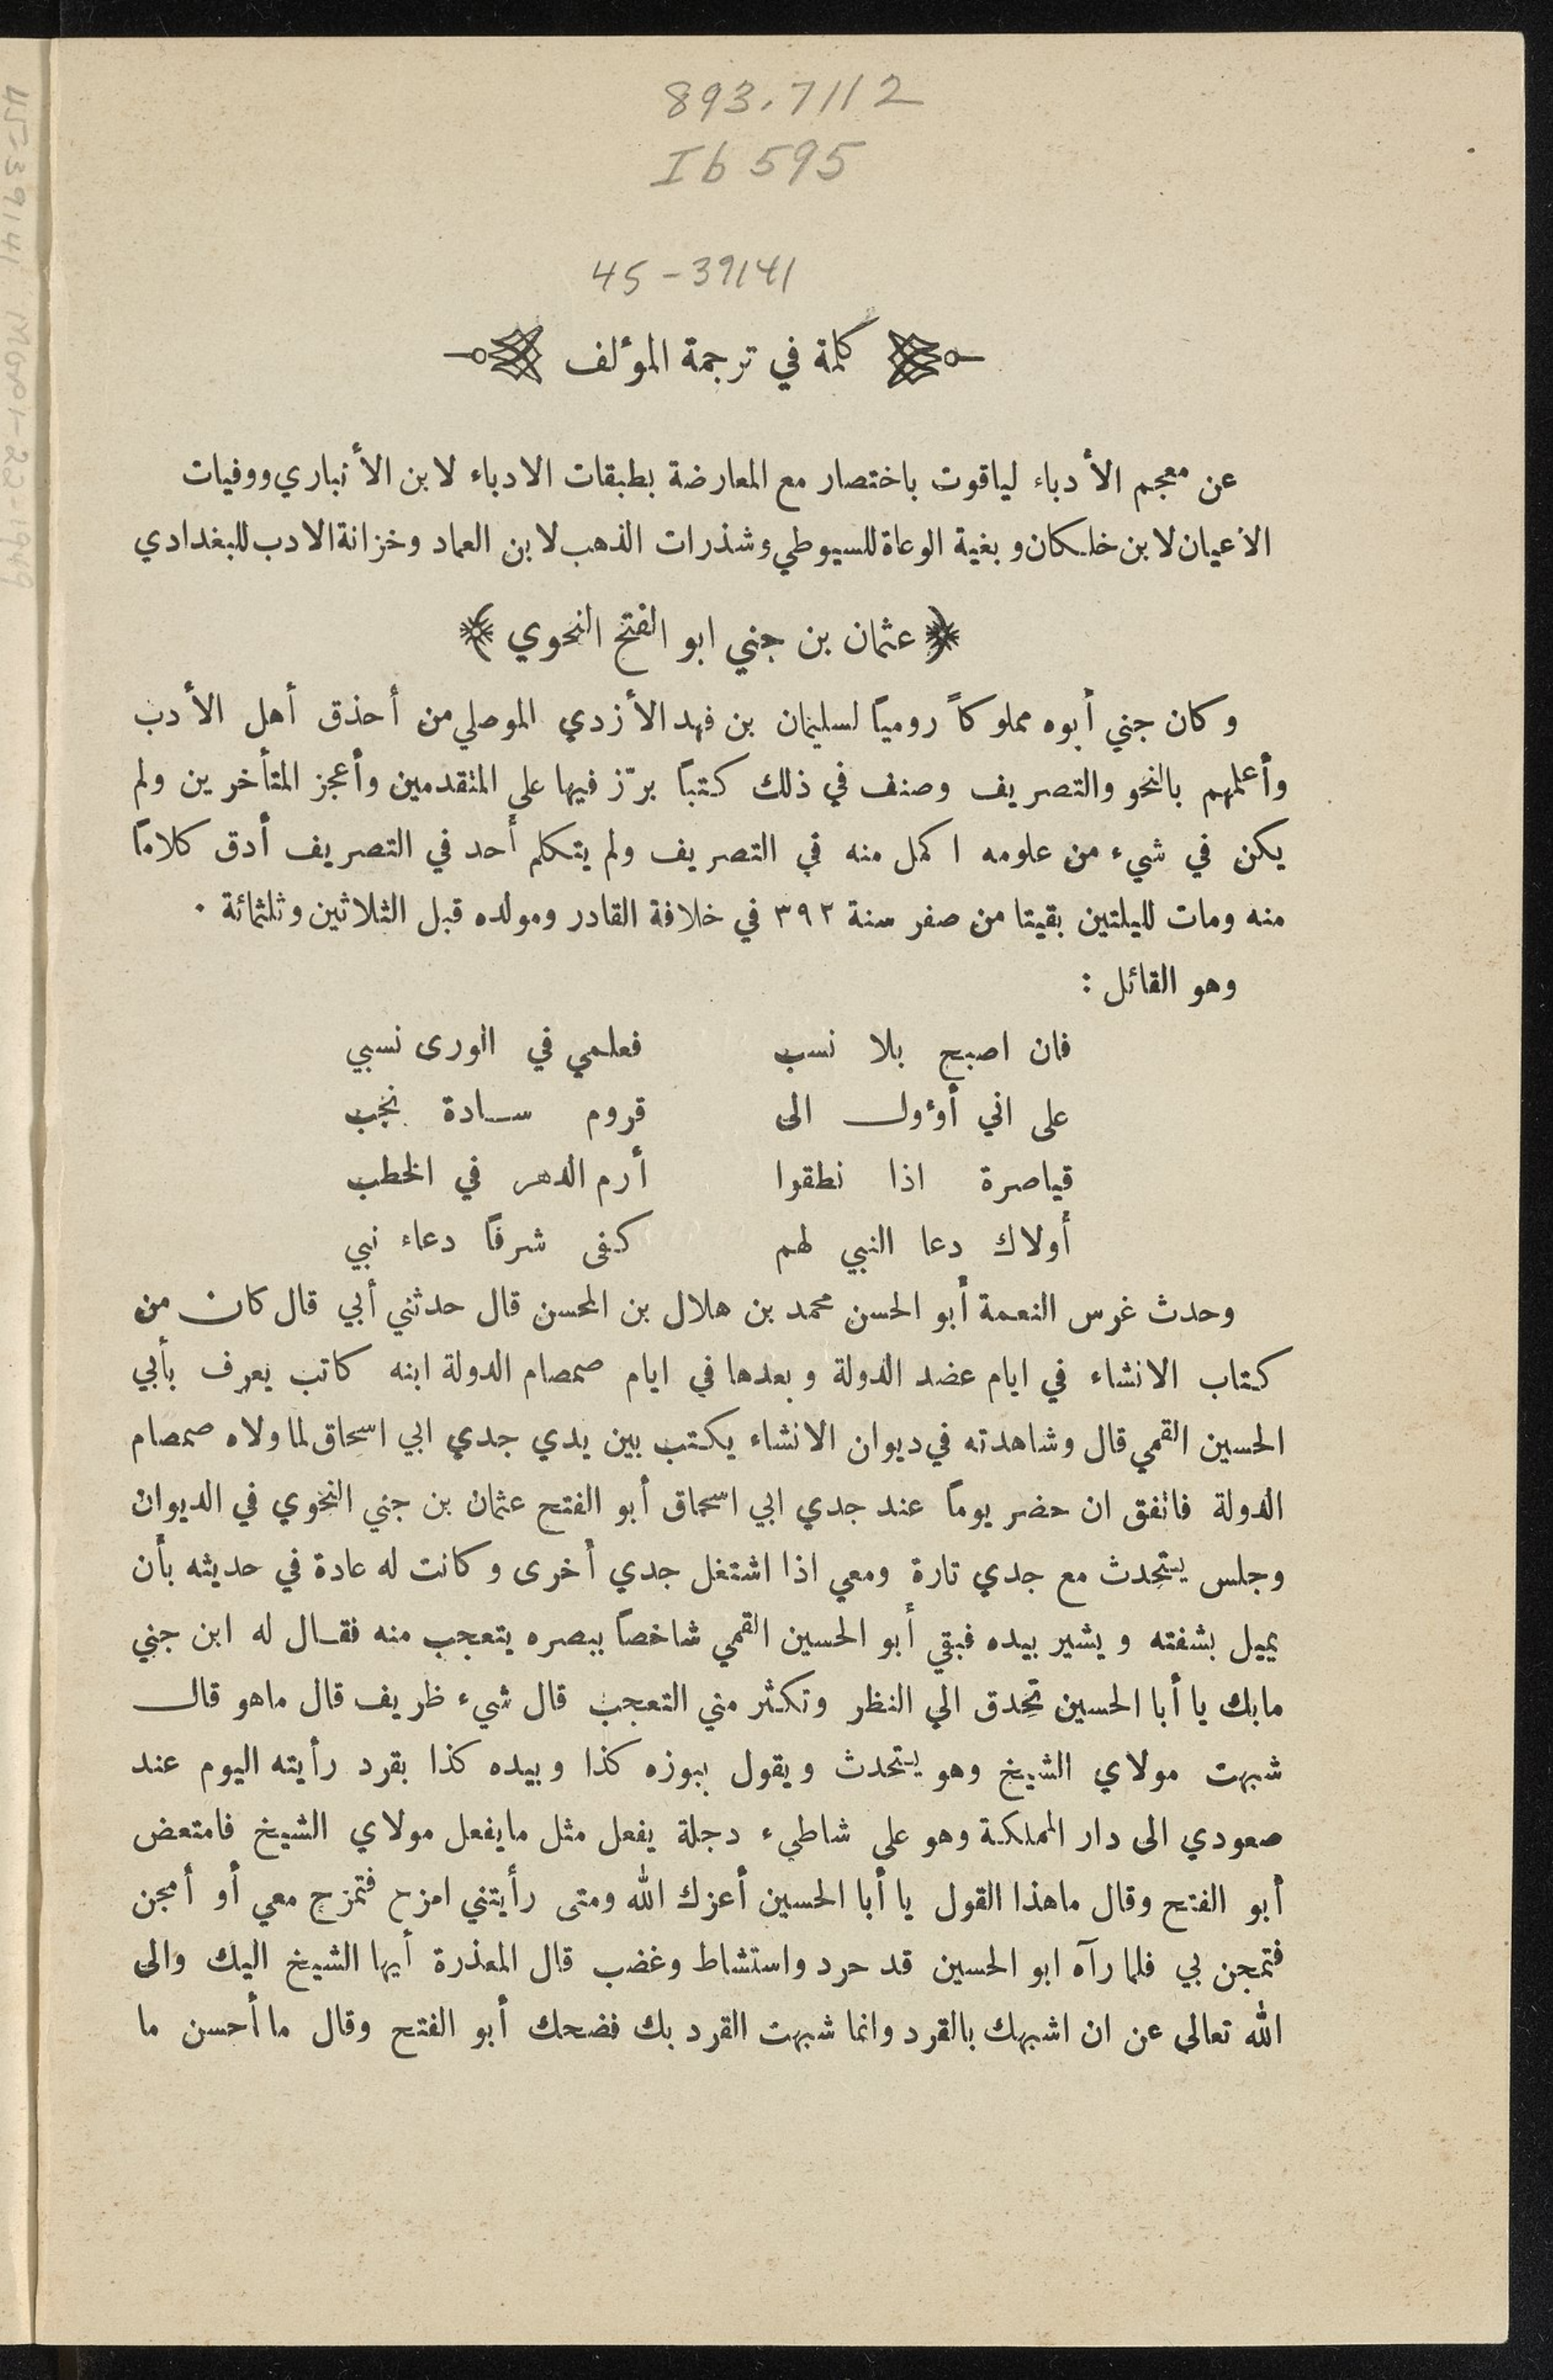 893.7112
Ib 595
45-39141
كلمة في ترجمة المؤلف
عن معجم الأدباء لياقوت باختصار مع المعارضة بطبقات الادباء لابن الأنباري ووفيات
الأعيان لابن خلكان وبغية الوعاة للسيوطي وشذرات الذهب لابن العماد وخزانة الادب للبغدادي
﴿ عثمان بن جني ابو الفتح النحوي ﴾
وكان جني أبوه مملوكاً رومياً لسليمان بن فهد الأزدي الموصلي من أحذق أهل الأدب
وأعلمهم بالنحو والتصريف وصنف في ذلك كتباً برّز فيها على المتقدمين وأعجز المتأخرين ولم
يكن في شيء من علومه اكمل منه في التصريف ولم يتكلم أحد في التصريف أدق كلاماً
منه ومات لليلتين بقيتا من صفر سنة ٣٩٢ في خلافة القادر ومولده قبل الثلاثين وثلثمائة .
وهو القائل :
فان اصبح بلا نسب فعلمي في الورى نسبي
على اني أوؤل الى قروم سادة نجب
قياصرة اذا نطقوا أرم الدهر في الخطب
أولاك دعا النبي لهم كفى شرفاً دعاء نبي
وحدث غرس النعمة أبو الحسن محمد بن هلال بن المحسن قال حدثني أبي قال كان من
كتاب الانشاء في ايام عضد الدولة وبعدها في ايام صمصام الدولة ابنه كاتب يعرف بأبي
الحسين القمي قال وشاهدته في ديوان الانشاء يكتب بين يدي جدي ابي اسحاق لما ولاه صمصام
الدولة فاتفق ان حضر يوماً عند جدي ابي اسحاق أبو الفتح عثمان بن جني النحوي في الديوان
وجلس يتحدث مع جدي تارة ومعي اذا اشتغل جدي أخرى وكانت له عادة في حديثه بأن
يميل بشفته ويشير بيده فبقي أبو الحسين القمي شاخصاً ببصره يتعجب منه فقال له ابن جني
مابك يا أبا الحسين تحدق الي النظر وتكثر مني التعجب قال شيء ظريف قال ماهو قال
شبهت مولاي الشيخ وهو يتحدث ويقول ببوزه كذا وبيده كذا بقرد رأيته اليوم عند
صعودي الى دار المملكة وهو على شاطيء دجلة يفعل مثل مايفعل مولاي الشيخ فامتعض
أبو الفتح وقال ماهذا القول يا أبا الحسين أعزك الله ومتى رأيتني امزح فتمزح معي أو أمجن
فتمجن بي فلما رآه ابو الحسين قد حرد واستشاط وغضب قال المعذرة أيها الشيخ اليك والى
الله تعالى عن ان اشبهك بالقرد وانما شبهت القرد بك فضحك أبو الفتح وقال ما أحسن ما